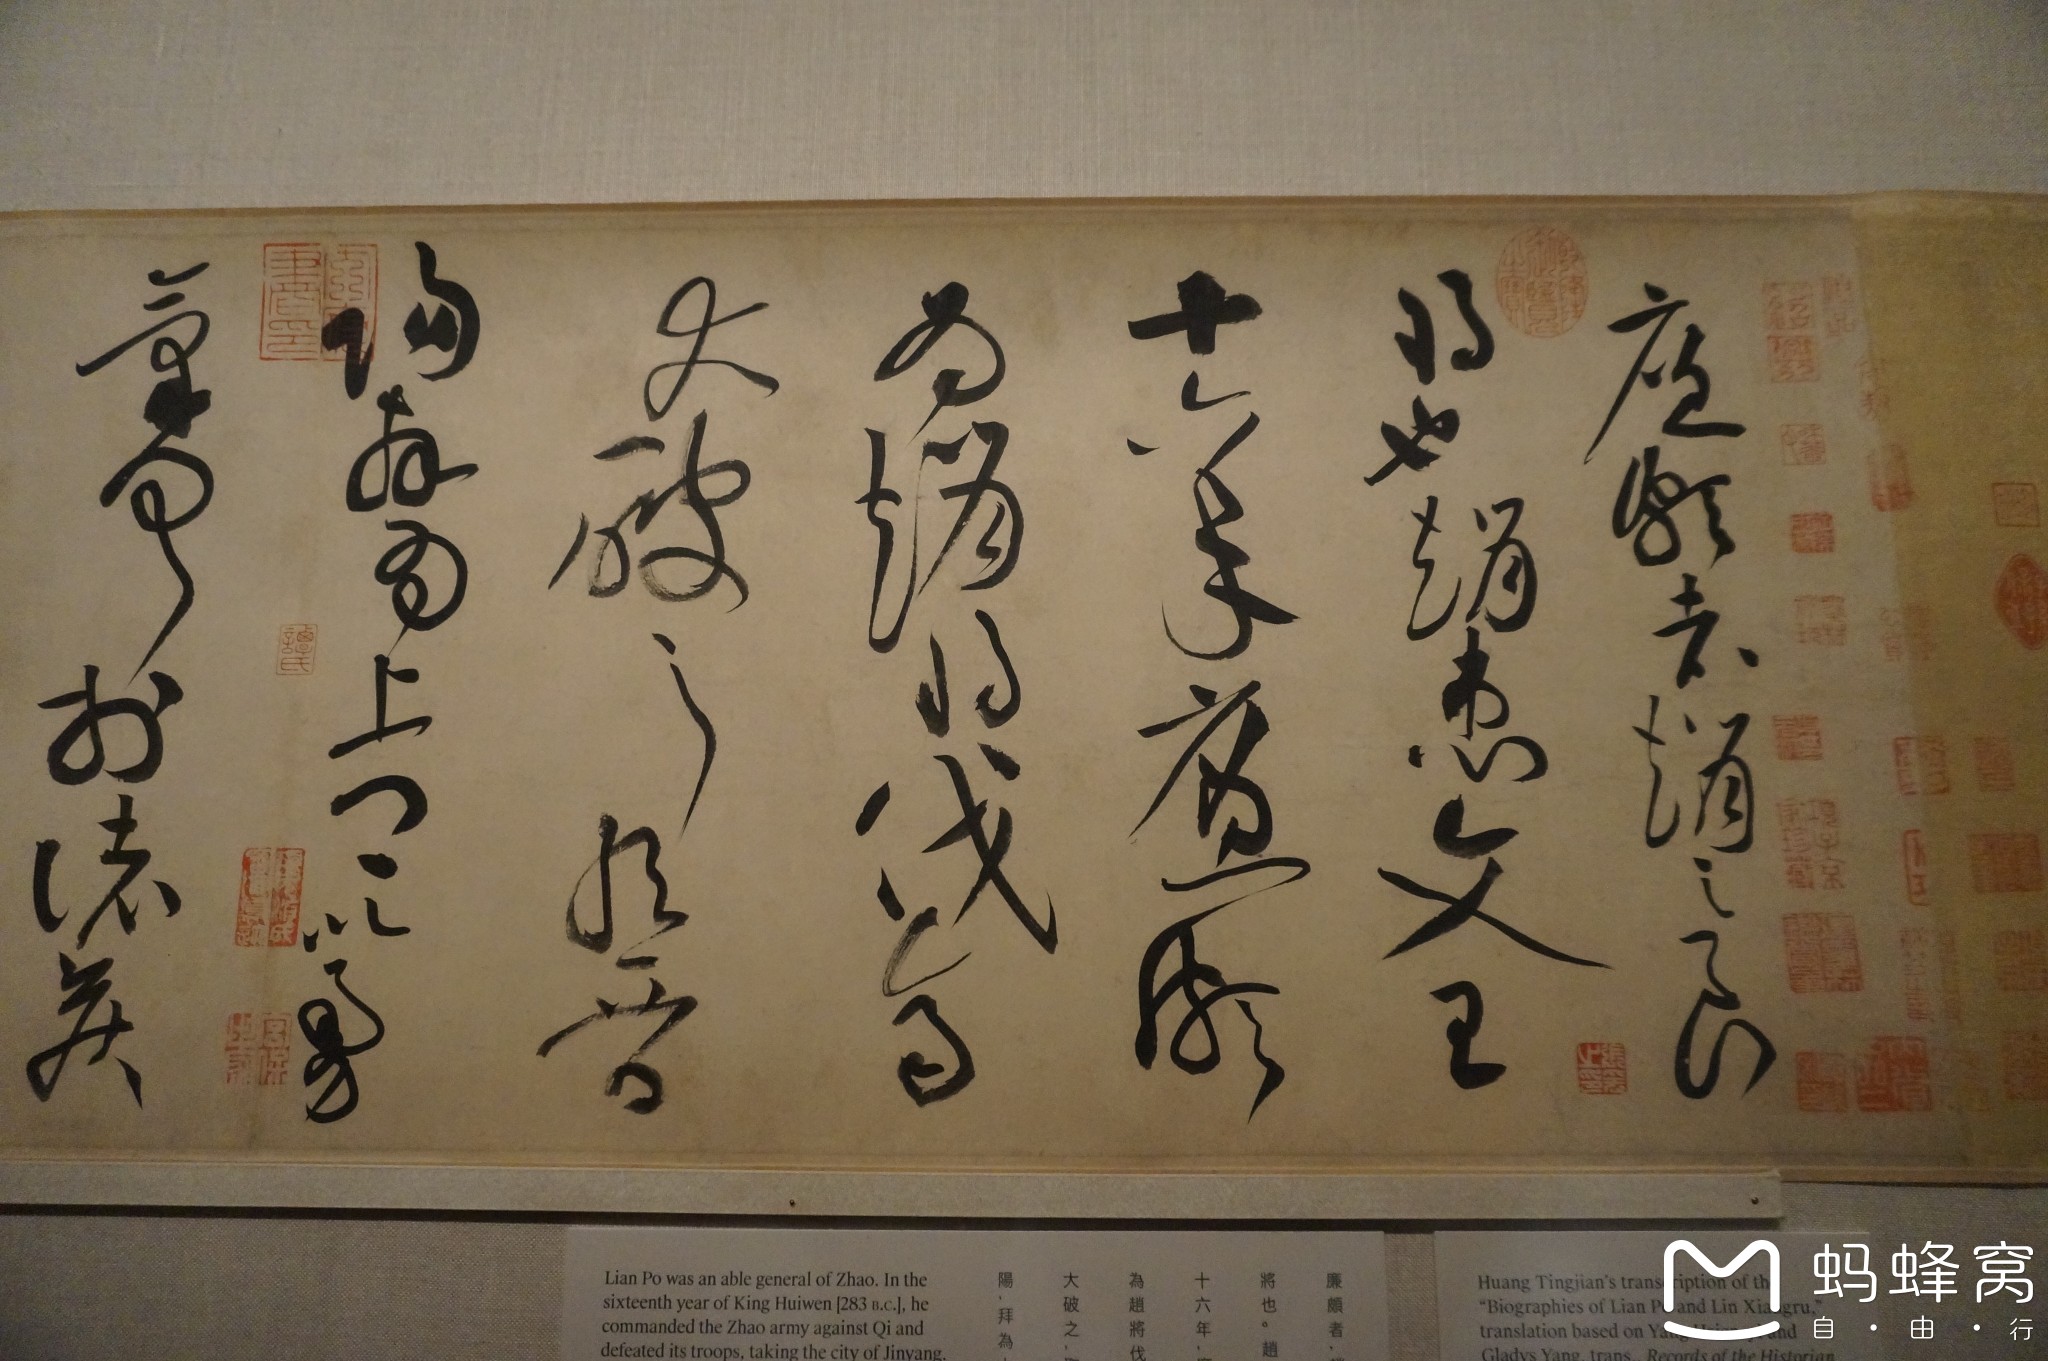 廉頗者趙之良
將也趙惠文王
十六年廉頗
為趙將伐齊
大破之取晉
陽拜為上卿以勇
氣聞於諸侯
譚氏
Lian Po was an able general of Zhao. In the
sixteenth year of King Huiwen [283 B.C.], he
commanded the Zhao army against Qi and
defeated its troops, taking the city of Jinyang.
廉頗者，
將也。趙
十六年，
為趙將伐
大破之，
陽，拜為
Huang Tingjian's transcription of the
"Biographies of Lian Po and Lin Xiangru,"
translation based on Yang and
Gladys Yang, trans., Records of the Historian
蚂蜂窝
自·由·行